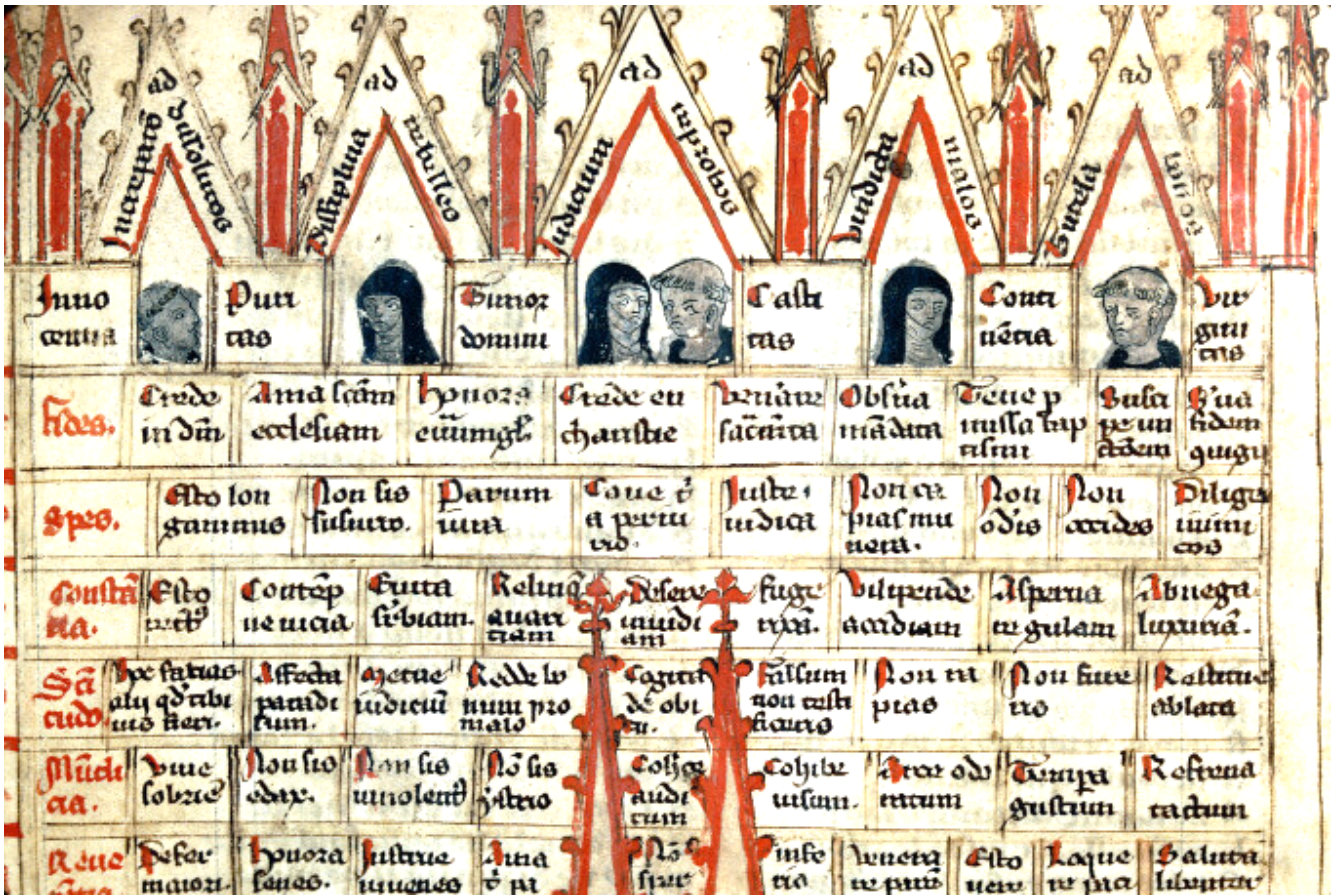 Increpatō ad dissolutos
Disciplina ad rebelles
Judicium ad reprobos
vindicta ad malos
Tutela ad bonos
Inno
centia
Puri
tas
Timor
domini
Casti
tas
Conti
nēcia
Vir
gini
tas
fides.
Crede
in dm̄
Ama scām
ecclesiam
Honora
euāngl̄
Crede eu
charistie
Venerare
sacr̄ēta
Obs̄ua
mādata
Tene p
missa bap
tismi
Susci
pe un
ctōem
Spes.
Esto lon
ganimus
Non sis
susurro.
Parum
iura
Caue t̄
a periu
rio.
Juste
iudica
Non ca
pias mu
nera.
Non
odis
Non
occides
Dilige
inimi
cos
Constā
tia.
Esto
Contēp
ne uicia
Euita
sr̄biam.
Relinq̄
auari
tiam
Desere
inuidi
am
Fuge
Vilipende
accidiam
Asperna
re gulam
Abnega
luxuriā.
Scī
tudo.
Hoc facias
alij qd̄ tibi
uis fieri.
Affecta
paradi
sum.
Metue
iudiciū
Redde bo
num pro
malo
Cogita
de obi
tu.
Falsum
non testi
ficeris
Non ra
pias
Non fure
ris
Restitue
ablata
Mūdi
cia.
Viue
sobrie
Non sis
edax.
Non sis
uinolent9
Nō sis
Cohibe
audi
tum
Cohibe
uisum.
Arce odo
ratum
Tempa
gustum
Refrena
tactum
Reue
Defer
maiori.
Honora
senes.
Instrue
iuuenes
Esto
Loque
re paci
Saluta
libenter